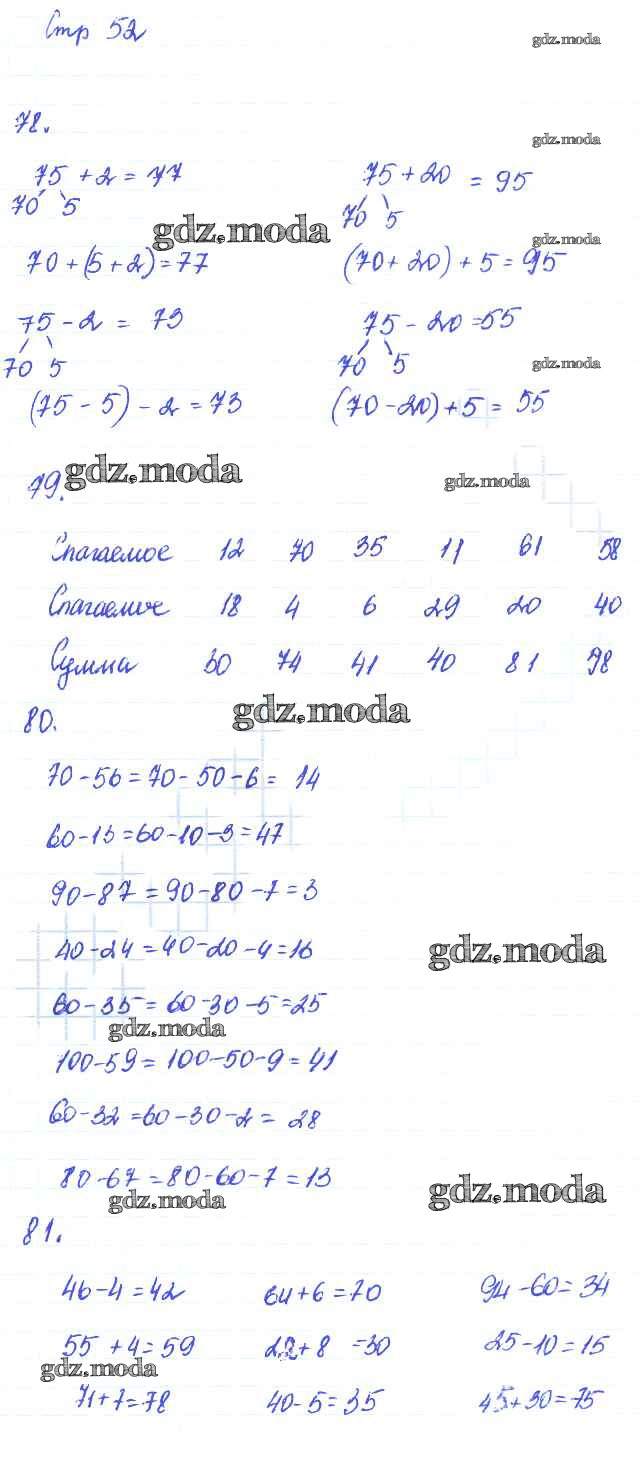 Стр 52
gdz.moda
78.
gdz.moda
75 + 2 = 77
75 + 20 = 95
70 5
70 5
gdz.moda
gdz.moda
70 + (5 + 2) = 77
(70 + 20) + 5 = 95
75 - 2 = 73
75 - 20 = 55
70 5
70 5
gdz.moda
(75 - 5) - 2 = 73
(70 - 20) + 5 = 55
79.
gdz.moda
gdz.moda
Слагаемое 12 70 35 11 61 58
Слагаемое 18 4 6 29 20 40
Сумма 30 74 41 40 81 98
80.
gdz.moda
70 - 56 = 70 - 50 - 6 = 14
60 - 13 = 60 - 10 - 3 = 47
90 - 87 = 90 - 80 - 7 = 3
40 - 24 = 40 - 20 - 4 = 16
gdz.moda
60 - 35 = 60 - 30 - 5 = 25
gdz.moda
100 - 59 = 100 - 50 - 9 = 41
60 - 32 = 60 - 30 - 2 = 28
80 - 67 = 80 - 60 - 7 = 13
gdz.moda
gdz.moda
81.
46 - 4 = 42 64 + 6 = 70 94 - 60 = 34
55 + 4 = 59 22 + 8 = 30 25 - 10 = 15
gdz.moda
71 + 7 = 78 40 - 5 = 35 45 + 30 = 75